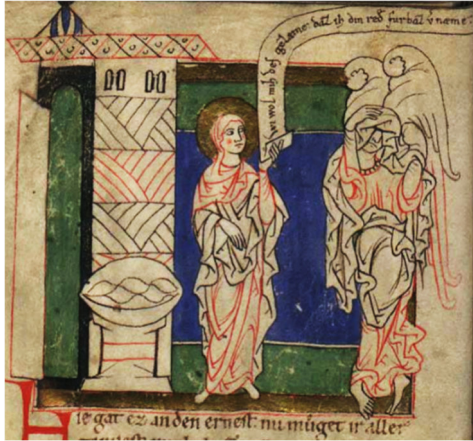 wi wol mih des gezæme. daz ih din red furbaz v næme.
Hie gat ez an den ernest. nu muget ir aller